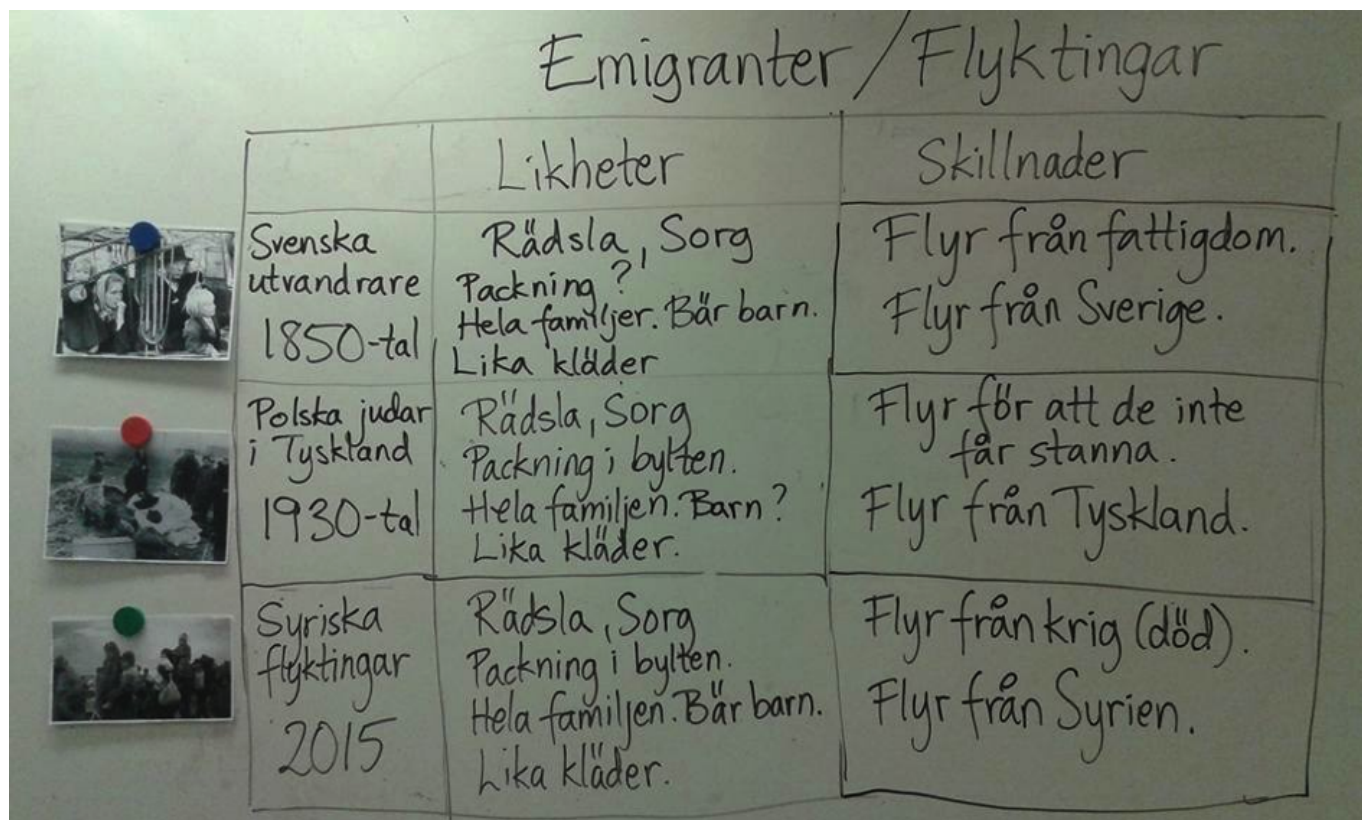 Emigranter / Flyktingar
Likheter
Skillnader
Svenska
utvandrare
1850-tal
Rädsla, Sorg
Packning ?
Hela familjer. Bär barn.
Lika kläder
Flyr från fattigdom.
Flyr från Sverige.
Polska judar
i Tyskland
1930-tal
Rädsla, Sorg
Packning i bylten.
Hela familjen. Barn?
Lika kläder.
Flyr för att de inte
får stanna.
Flyr från Tyskland.
Syriska
flyktingar
2015
Rädsla, Sorg
Packning i bylten.
Hela familjen. Bär barn.
Lika kläder.
Flyr från krig (död).
Flyr från Syrien.